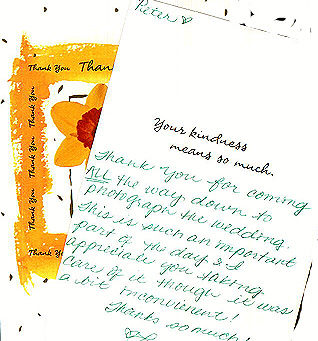 Peter
Thank You Than
Thank You
Thank You
Thank You
Thank You
Your kindness
means so much.
Thank you for coming
ALL the way down to
photograph the wedding.
This is such an important
part of the day & I
appreciate you taking
care of it though it was
a bit inconvienent!
Thanks so much!